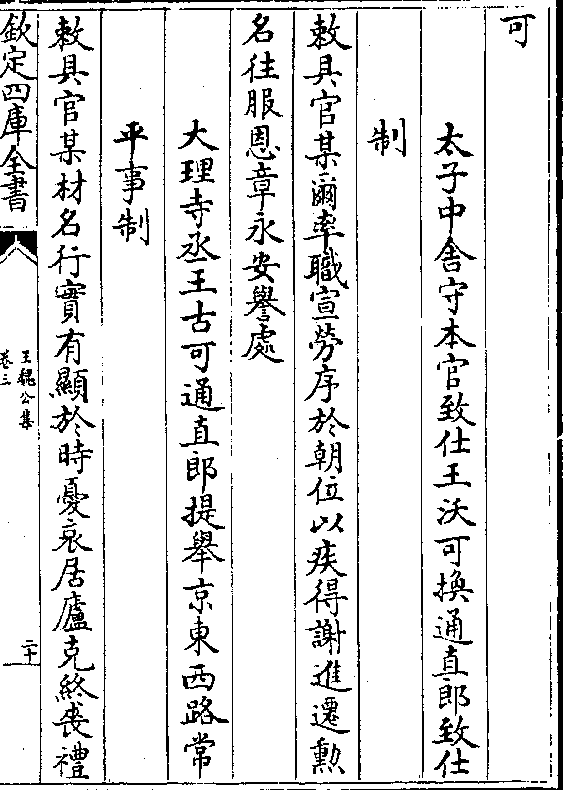 可
太子中舍守本官致仕王沃可換通直郎致仕
制
敕具官某爾率職宣勞序於朝位以疾得謝進遷勲
名往服恩章永安譽處
大理寺丞王古可通直郎提舉京東西路常
平事制
敕具官某材名行實有顯於時憂哀居廬克終喪禮
欽定四庫全書
王魏公集
卷三
二十